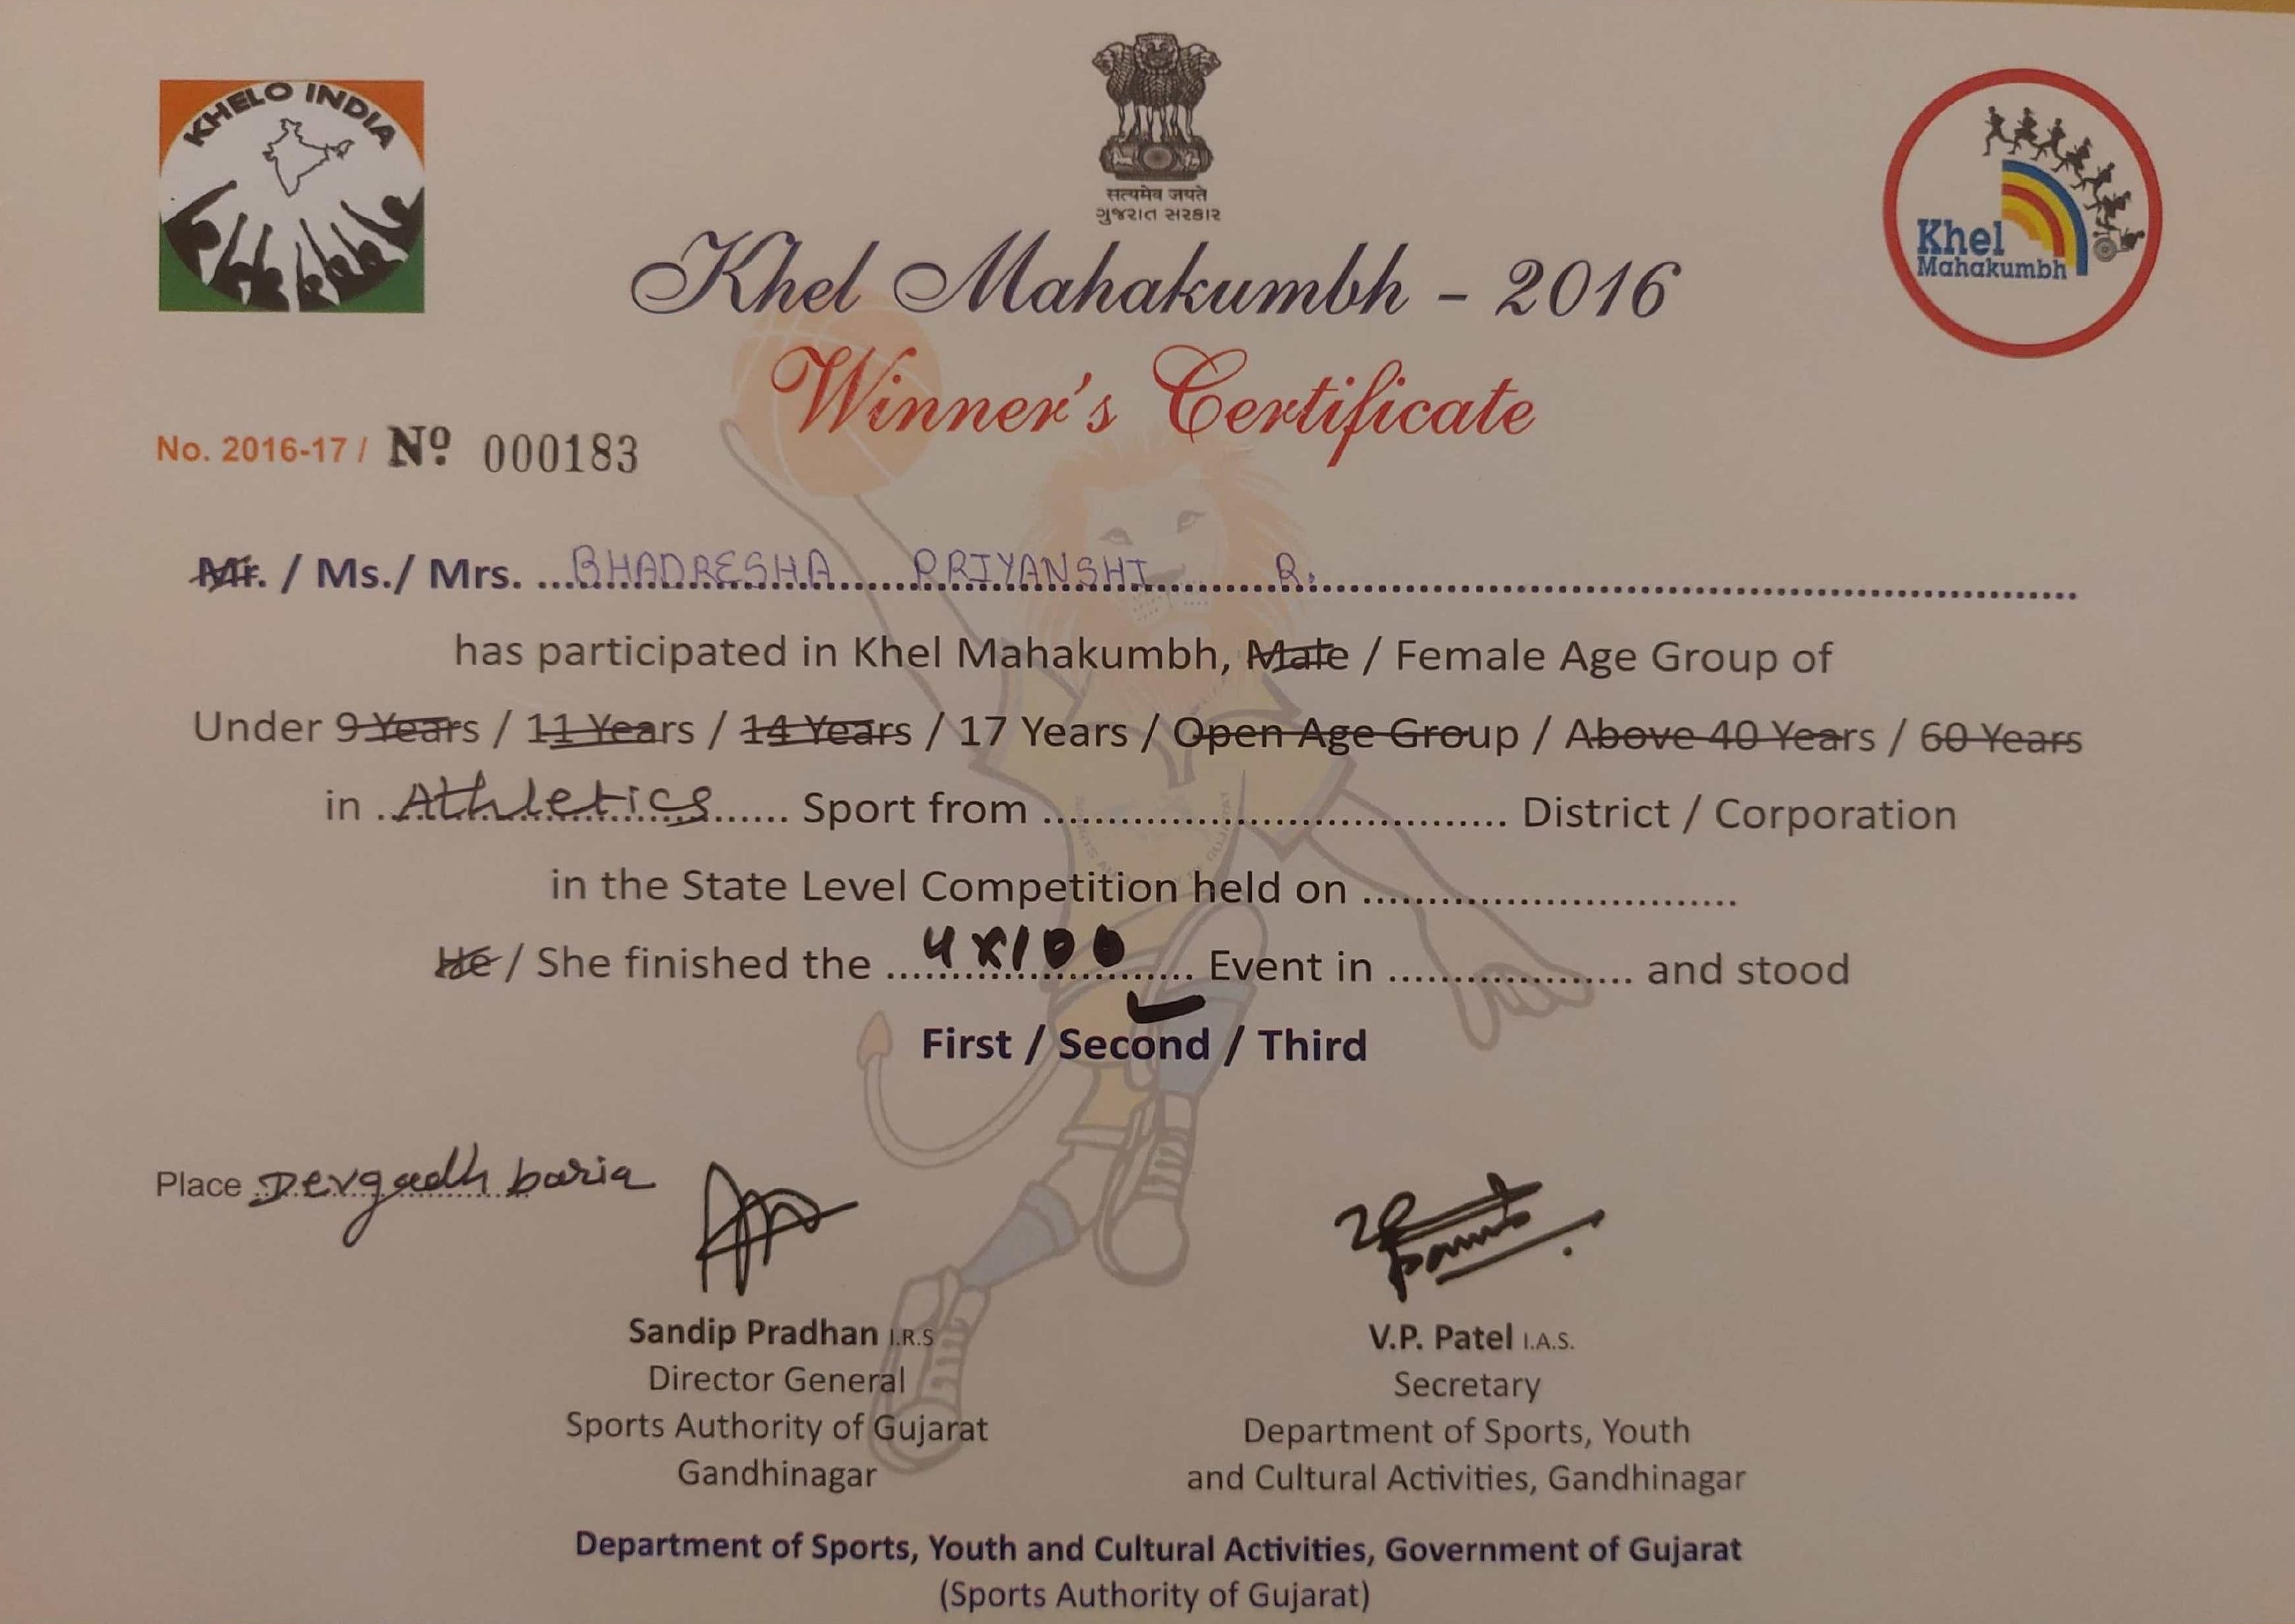 KHELO INDIA
सत्यमेव जयते
ગુજરાત સરકાર
Khel
Mahakumbh
Khel Mahakumbh - 2016
Winner's Certificate
No. 2016-17 / Nº 000183
Mr. / Ms./ Mrs. ...BHADRESHA PRIYANSHI R.
has participated in Khel Mahakumbh, Male / Female Age Group of
Under 9 Years / 11 Years / 14 Years / 17 Years / Open Age Group / Above 40 Years / 60 Years
in Athletics Sport from .................... District / Corporation
in the State Level Competition held on ....................
He / She finished the 4x100 Event in .................... and stood
First / Second / Third
Place Devgadh baria
Sandip Pradhan I.R.S
Director General
Sports Authority of Gujarat
Gandhinagar
V.P. Patel I.A.S.
Secretary
Department of Sports, Youth
and Cultural Activities, Gandhinagar
Department of Sports, Youth and Cultural Activities, Government of Gujarat
(Sports Authority of Gujarat)